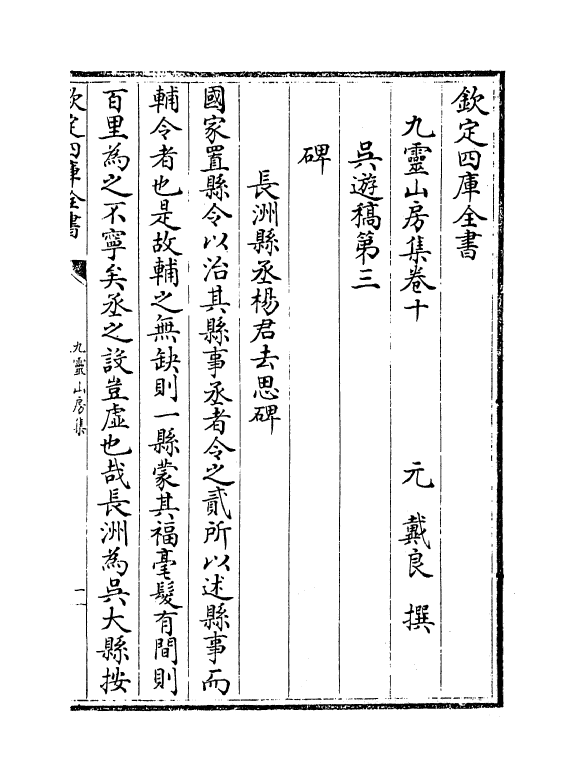 欽定四庫全書
九靈山房集卷十
元 戴良 撰
吳遊稿第三
碑
長洲縣丞楊君去思碑
國家置縣令以治其縣事丞者令之貳所以述縣事而
輔令者也是故輔之無缺則一縣蒙其福毫髮有間則
百里為之不寧矣丞之設豈虛也哉長洲為吳大縣按
欽定四庫全書
九靈山房集
一